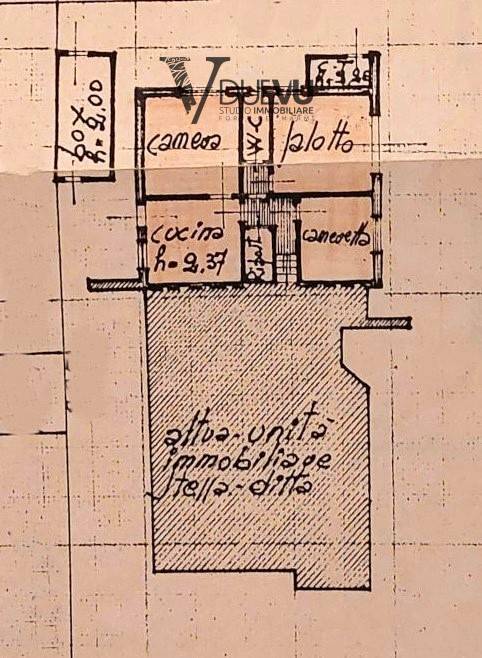 DUEVU
STUDIO IMMOBILIARE
FORTE DEI MARMI
C.T.
h=2.20
box
h=2.00
camera
W.C
salotto
cucina
h=2.37
Ripost.
cameretta
altra-unità
immobiliare
stessa-ditta